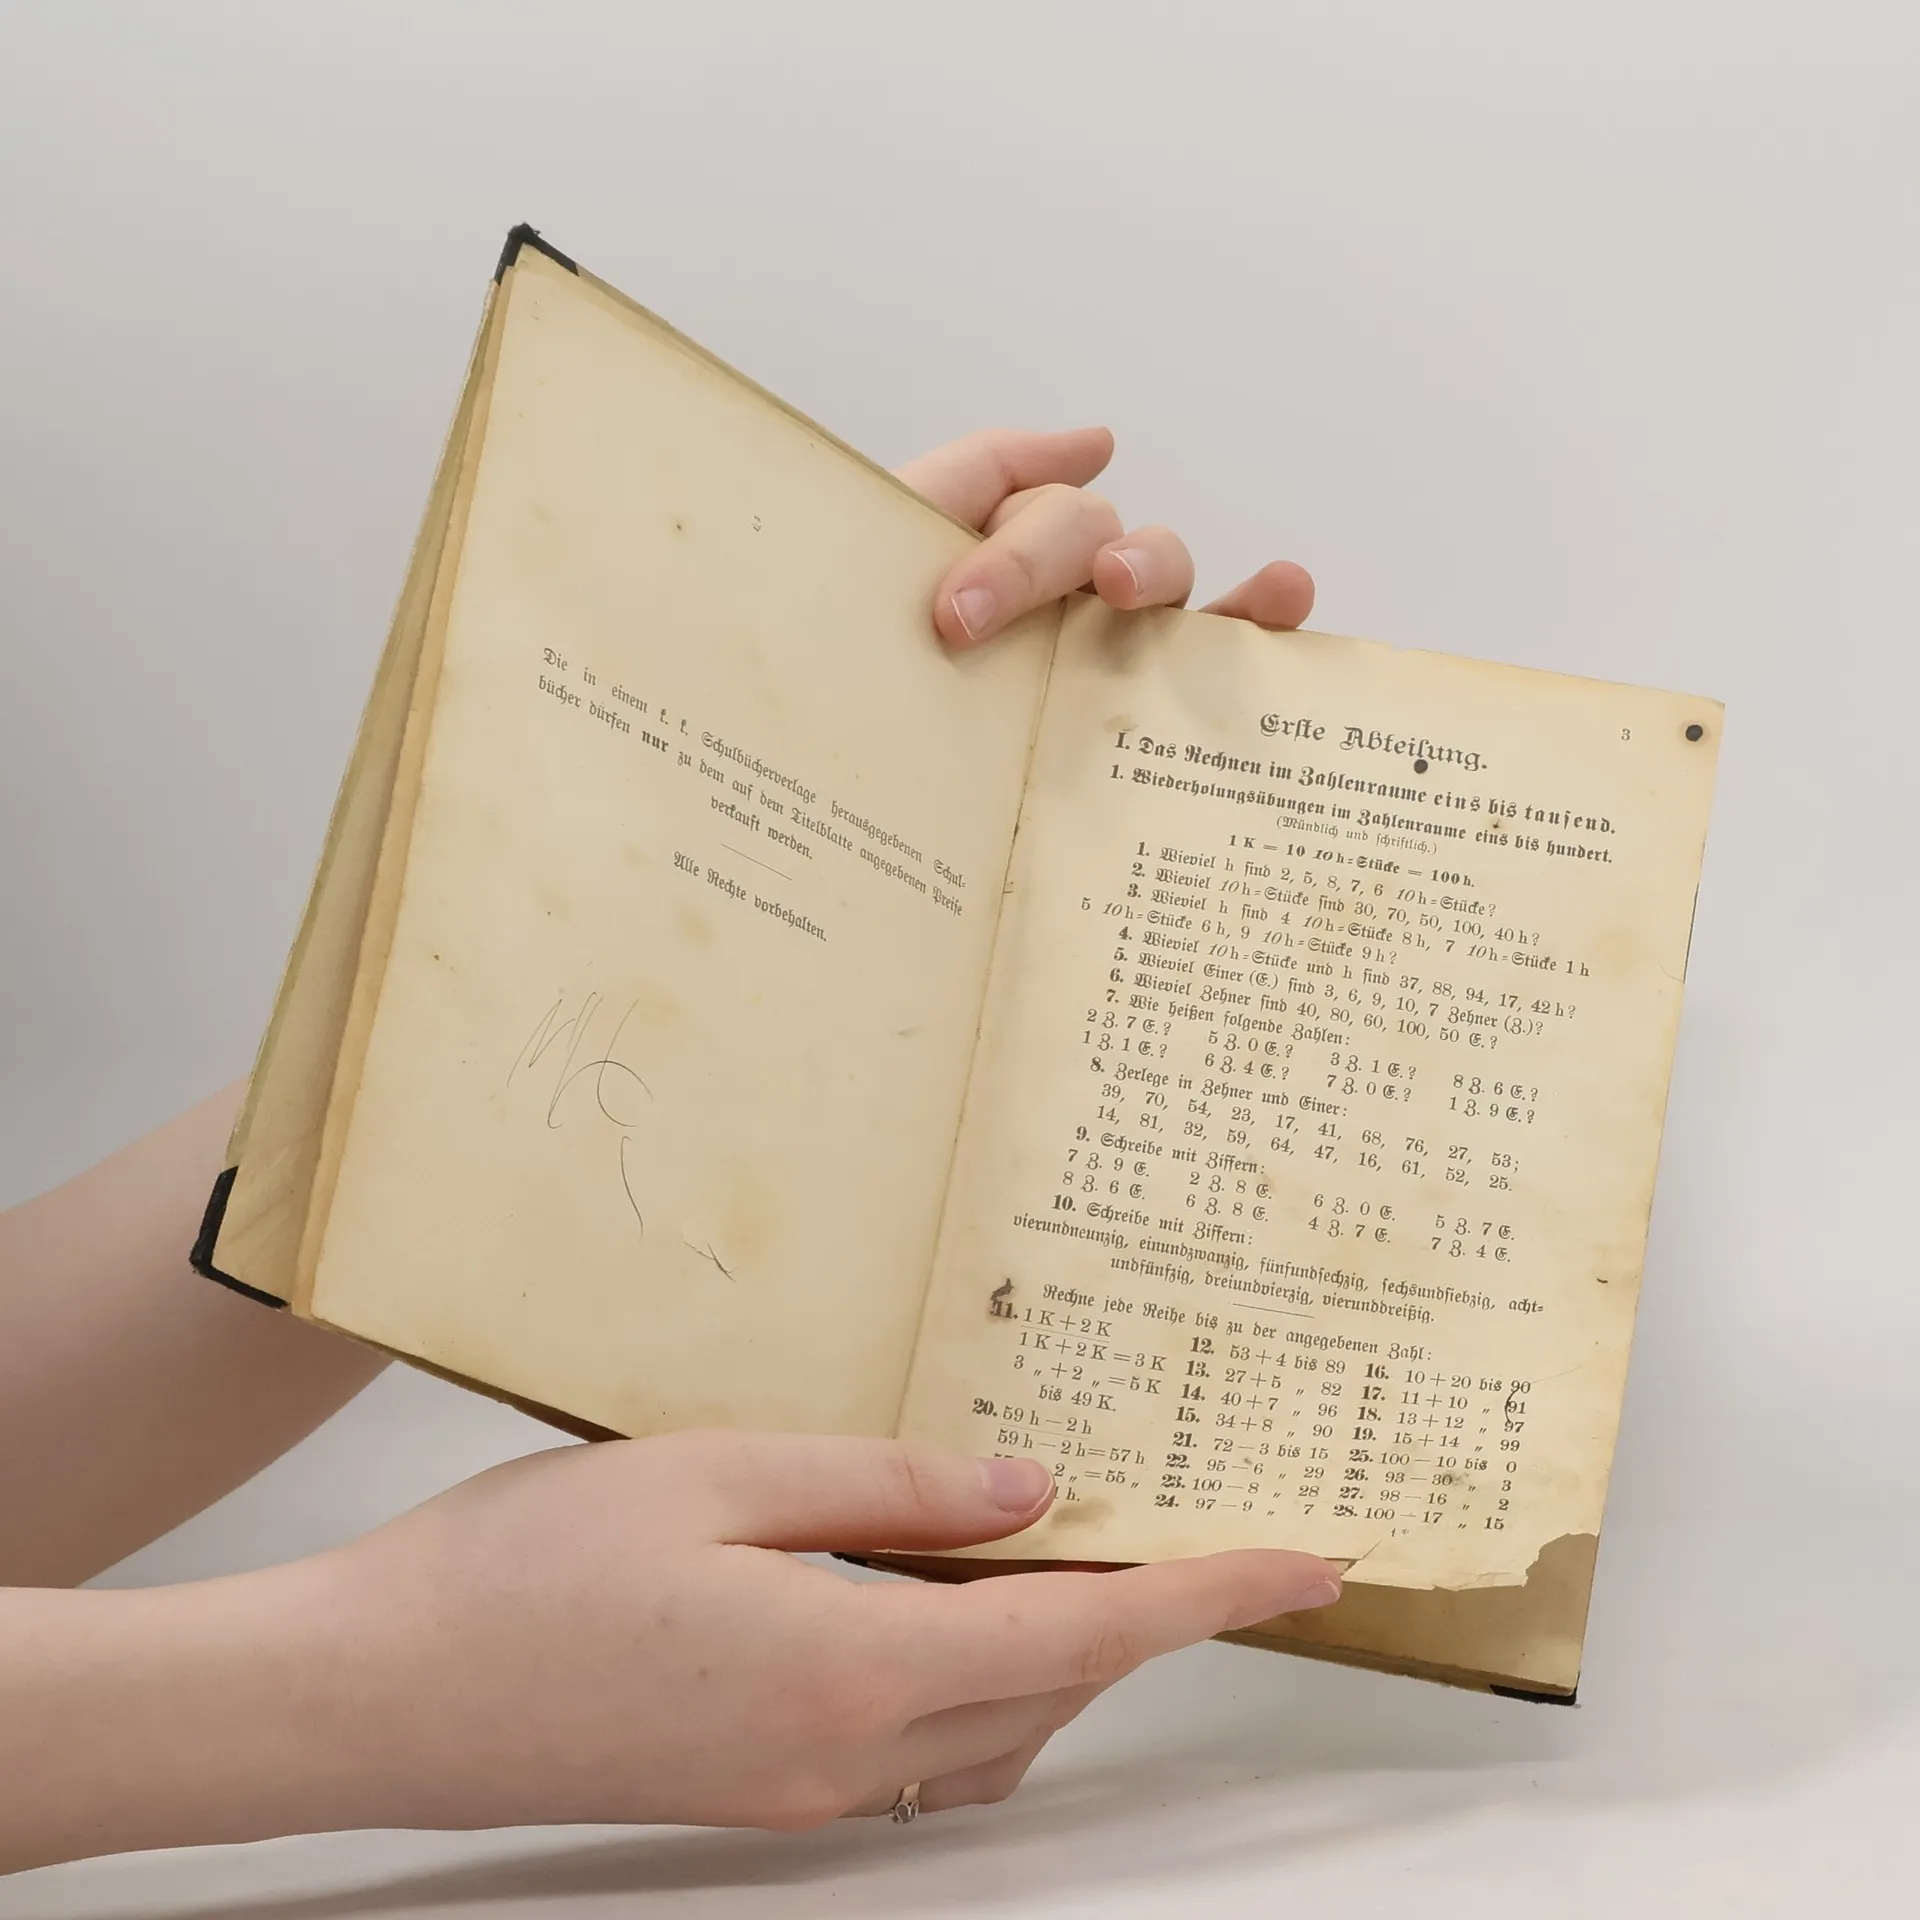 Die in einem k. k. Schulbücherverlage herausgegebenen Schul-
bücher dürfen nur zu dem auf dem Titelblatte angegebenen Preise
verkauft werden.
Alle Rechte vorbehalten.
3
Erste Abteilung.
I. Das Rechnen im Zahlenraume eins bis tausend.
1. Wiederholungsübungen im Zahlenraume eins bis hundert.
(Mündlich und schriftlich.)
1 K = 10 10 h-Stücke = 100 h.
1. Wieviel h sind 2, 5, 8, 7, 6 10 h-Stücke?
2. Wieviel 10 h-Stücke sind 30, 70, 50, 100, 40 h?
3. Wieviel h sind 4 10 h-Stücke 8 h, 7 10 h-Stücke 1 h
5 10 h-Stücke 6 h, 9 10 h-Stücke 9 h?
4. Wieviel 10 h-Stücke und h sind 37, 88, 94, 17, 42 h?
5. Wieviel Einer (E.) sind 3, 6, 9, 10, 7 Zehner (Z.)?
6. Wieviel Zehner sind 40, 80, 60, 100, 50 E.?
7. Wie heißen folgende Zahlen:
2 Z. 7 E.? 5 Z. 0 E.? 3 Z. 1 E.? 8 Z. 6 E.?
1 Z. 1 E.? 6 Z. 4 E.? 7 Z. 0 E.? 1 Z. 9 E.?
8. Zerlege in Zehner und Einer:
39, 70, 54, 23, 17, 41, 68, 76, 27, 53;
14, 81, 32, 59, 64, 47, 16, 61, 52, 25.
9. Schreibe mit Ziffern:
7 Z. 9 E. 2 Z. 8 E. 6 Z. 0 E. 5 Z. 7 E.
8 Z. 6 E. 6 Z. 8 E. 4 Z. 7 E. 7 Z. 4 E.
10. Schreibe mit Ziffern:
vierundneunzig, einundzwanzig, fünfundsechzig, sechsundsiebzig, acht-
undfünfzig, dreiundvierzig, vierunddreißig.
Rechne jede Reihe bis zu der angegebenen Zahl:
11. 1 K + 2 K 12. 53 + 4 bis 89 16. 10 + 20 bis 90
1 K + 2 K = 3 K 13. 27 + 5 „ 82 17. 11 + 10 „ 91
3 „ + 2 „ = 5 K 14. 40 + 7 „ 96 18. 13 + 12 „ 97
bis 49 K. 15. 34 + 8 „ 90 19. 15 + 14 „ 99
20. 59 h — 2 h 21. 72 — 3 bis 15 25. 100 — 10 bis 0
59 h — 2 h = 57 h 22. 95 — 6 „ 29 26. 93 — 30 „ 3
2 „ = 55 „ 23. 100 — 8 „ 28 27. 98 — 16 „ 2
1 h. 24. 97 — 9 „ 7 28. 100 — 17 „ 15
1*